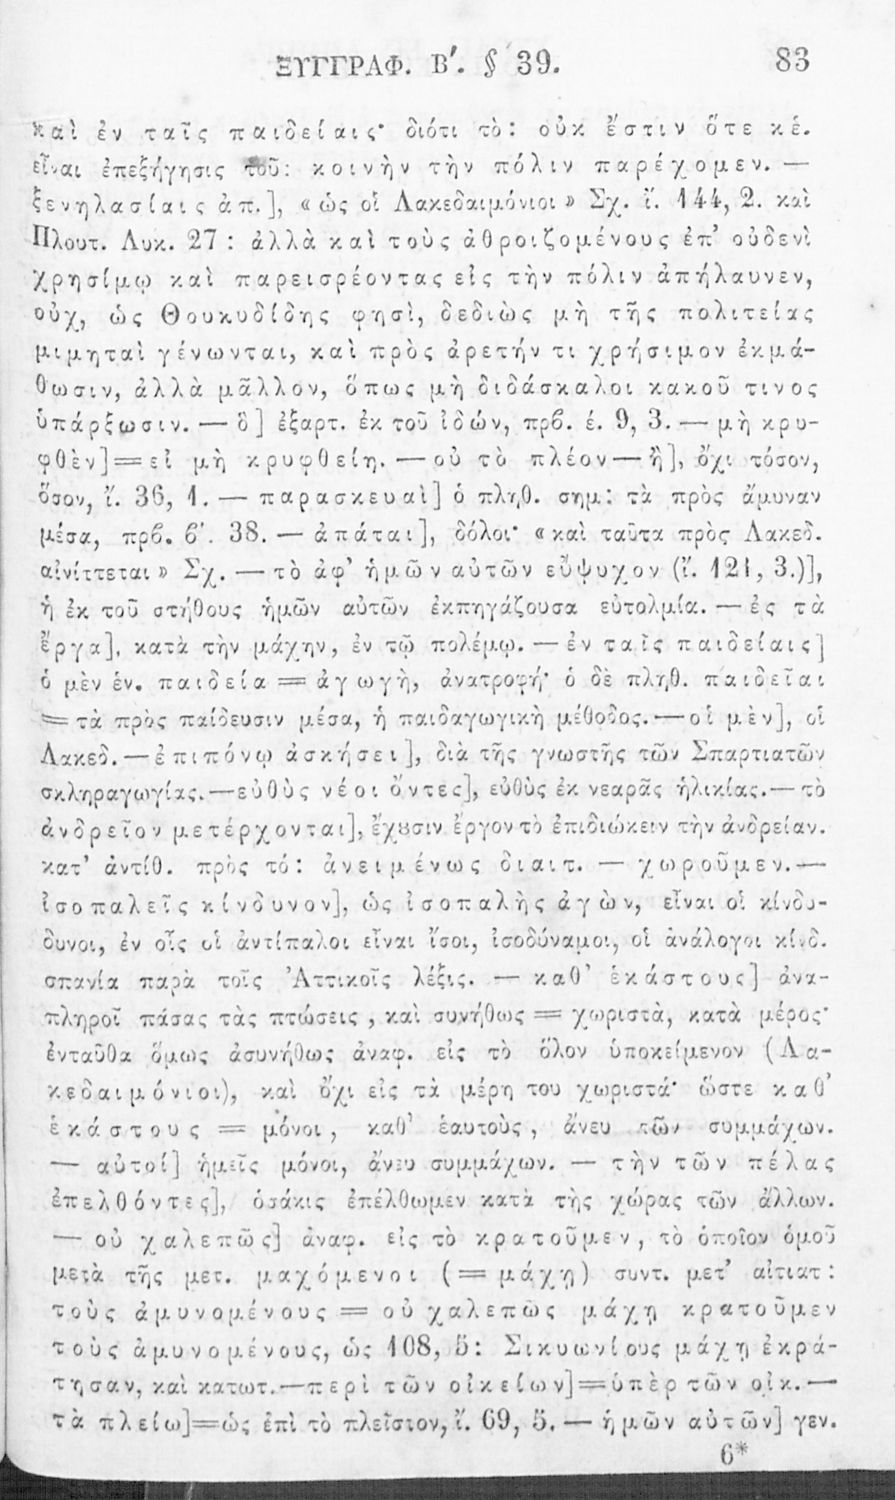 ΞΥΓΓΡΑΦ. Β′. § 39. 83
καὶ ἐν ταῖς παιδείαις· διότι τὸ: οὐκ ἔστιν ὅτε κέ.
εἶναι ἐπεξήγησις τοῦ: κοινὴν τὴν πόλιν παρέχομεν. —
ξενηλασίαις ἀπ.], «ὡς οἱ Λακεδαιμόνιοι» Σχ. ἴ. 144, 2. καὶ
Πλουτ. Λυκ. 27: ἀλλὰ καὶ τοὺς ἀθροιζομένους ἐπ’ οὐδενὶ
χρησίμῳ καὶ παρεισρέοντας εἰς τὴν πόλιν ἀπήλαυνεν,
οὐχ, ὡς Θουκυδίδης φησὶ, δεδιὼς μὴ τῆς πολιτείας
μιμηταὶ γένωνται, καὶ πρὸς ἀρετήν τι χρήσιμον ἐκμά-
θωσιν, ἀλλὰ μᾶλλον, ὅπως μὴ διδάσκαλοι κακοῦ τινος
ὑπάρξωσιν. — ὃ] ἐξαρτ. ἐκ τοῦ ἰδών, πρβ. έ. 9, 3. — μὴ κρυ-
φθὲν] = εἰ μὴ κρυφθείη. — οὐ τὸ πλέον — ἢ], ὄχι τόσον,
ὅσον, ἴ. 36, 1. — παρασκευαὶ] ὁ πληθ. σημ: τὰ πρὸς ἄμυναν
μέσα, πρβ. β′. 38. — ἀπάται], δόλοι· «καὶ ταῦτα πρὸς Λακεδ.
αἰνίττεται» Σχ. — τὸ ἀφ’ ἡμῶν αὐτῶν εὔψυχον (ἴ. 121, 3.)],
ἡ ἐκ τοῦ στήθους ἡμῶν αὐτῶν ἐκπηγάζουσα εὐτολμία. — ἐς τὰ
ἔργα], κατὰ τὴν μάχην, ἐν τῷ πολέμῳ. — ἐν ταῖς παιδείαις]
ὁ μὲν ἑν. παιδεία = ἀγωγὴ, ἀνατροφή· ὁ δὲ πληθ. παιδεῖαι
= τὰ πρὸς παίδευσιν μέσα, ἡ παιδαγωγικὴ μέθοδος. — οἱ μὲν], οἱ
Λακεδ. — ἐπιπόνῳ ἀσκήσει], διὰ τῆς γνωστῆς τῶν Σπαρτιατῶν
σκληραγωγίας. — εὐθὺς νέοι ὄντες], εὐθὺς ἐκ νεαρᾶς ἡλικίας. — τὸ
ἀνδρεῖον μετέρχονται], ἔχȣσιν ἔργον τὸ ἐπιδιώκειν τὴν ἀνδρείαν.
κατ’ ἀντίθ. πρὸς τό: ἀνειμένως διαιτ. — χωροῦμεν. —
ἰσοπαλεῖς κίνδυνον], ὡς ἰσοπαλὴς ἀγὼν, εἶναι οἱ κίνδυ-
δυνοι, ἐν οἷς οἱ ἀντίπαλοι εἶναι ἴσοι, ἰσοδύναμοι, οἱ ἀνάλογοι κίνδ.
σπανία παρὰ τοῖς Ἀττικοῖς λέξις. — καθ’ ἑκάστους] ἀνα-
πληροῖ πάσας τὰς πτώσεις, καὶ συνήθως = χωριστὰ, κατὰ μέρος·
ἐνταῦθα ὅμως ἀσυνήθως ἀναφ. εἰς τὸ ὅλον ὑποκείμενον (Λα-
κεδαιμόνιοι), καὶ ὄχι εἰς τὰ μέρη του χωριστά· ὥστε καθ’
ἑκάστους = μόνοι, καθ’ ἑαυτοὺς, ἄνευ τῶν συμμάχων.
— αὐτοί] ἡμεῖς μόνοι, ἄνευ συμμάχων. — τὴν τῶν πέλας
ἐπελθόντες], ὁσάκις ἐπέλθωμεν κατὰ τῆς χώρας τῶν ἄλλων.
— οὐ χαλεπῶς] ἀναφ. εἰς τὸ κρατοῦμεν, τὸ ὁποῖον ὁμοῦ
μετὰ τῆς μετ. μαχόμενοι (= μάχῃ) συντ. μετ’ αἰτιατ:
τοὺς ἀμυνομένους = οὐ χαλεπῶς μάχῃ κρατοῦμεν
τοὺς ἀμυνομένους, ὡς 108, 5: Σικυωνίους μάχῃ ἐκρά-
τησαν, καὶ κατωτ. — περὶ τῶν οἰκείων] = ὑπὲρ τῶν οἰκ. —
τὰ πλείω] = ὡς ἐπὶ τὸ πλεῖστον, ἴ. 69, 5. — ἡμῶν αὐτῶν] γεν.
6*